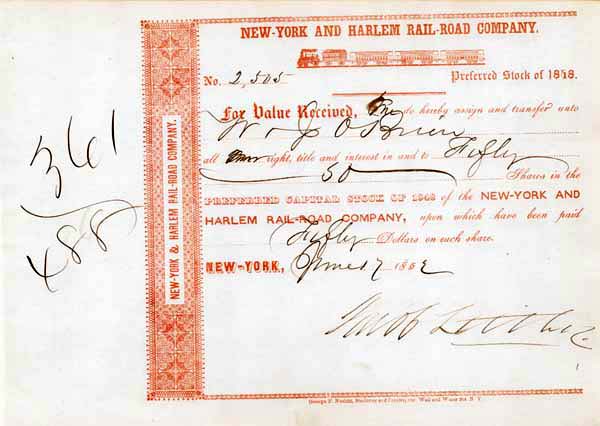 NEW-YORK AND HARLEM RAIL-ROAD COMPANY.
No. 2,505 Preferred Stock of 1848.
For Value Received, do hereby assign and transfer unto
W & J O'Brien
all right, title and interest in and to Fifty
50 Shares in the
PREFERRED CAPITAL STOCK OF 1848 of the NEW-YORK AND
HARLEM RAIL-ROAD COMPANY, upon which have been paid
Fifty Dollars on each share.
NEW-YORK, June 17 1852
Jacob Little
NEW-YORK & HARLEM RAIL-ROAD COMPANY.
361
488
George F. Nesbitt, Stationer and Printer, cor. Wall and Water Sts. N. Y.